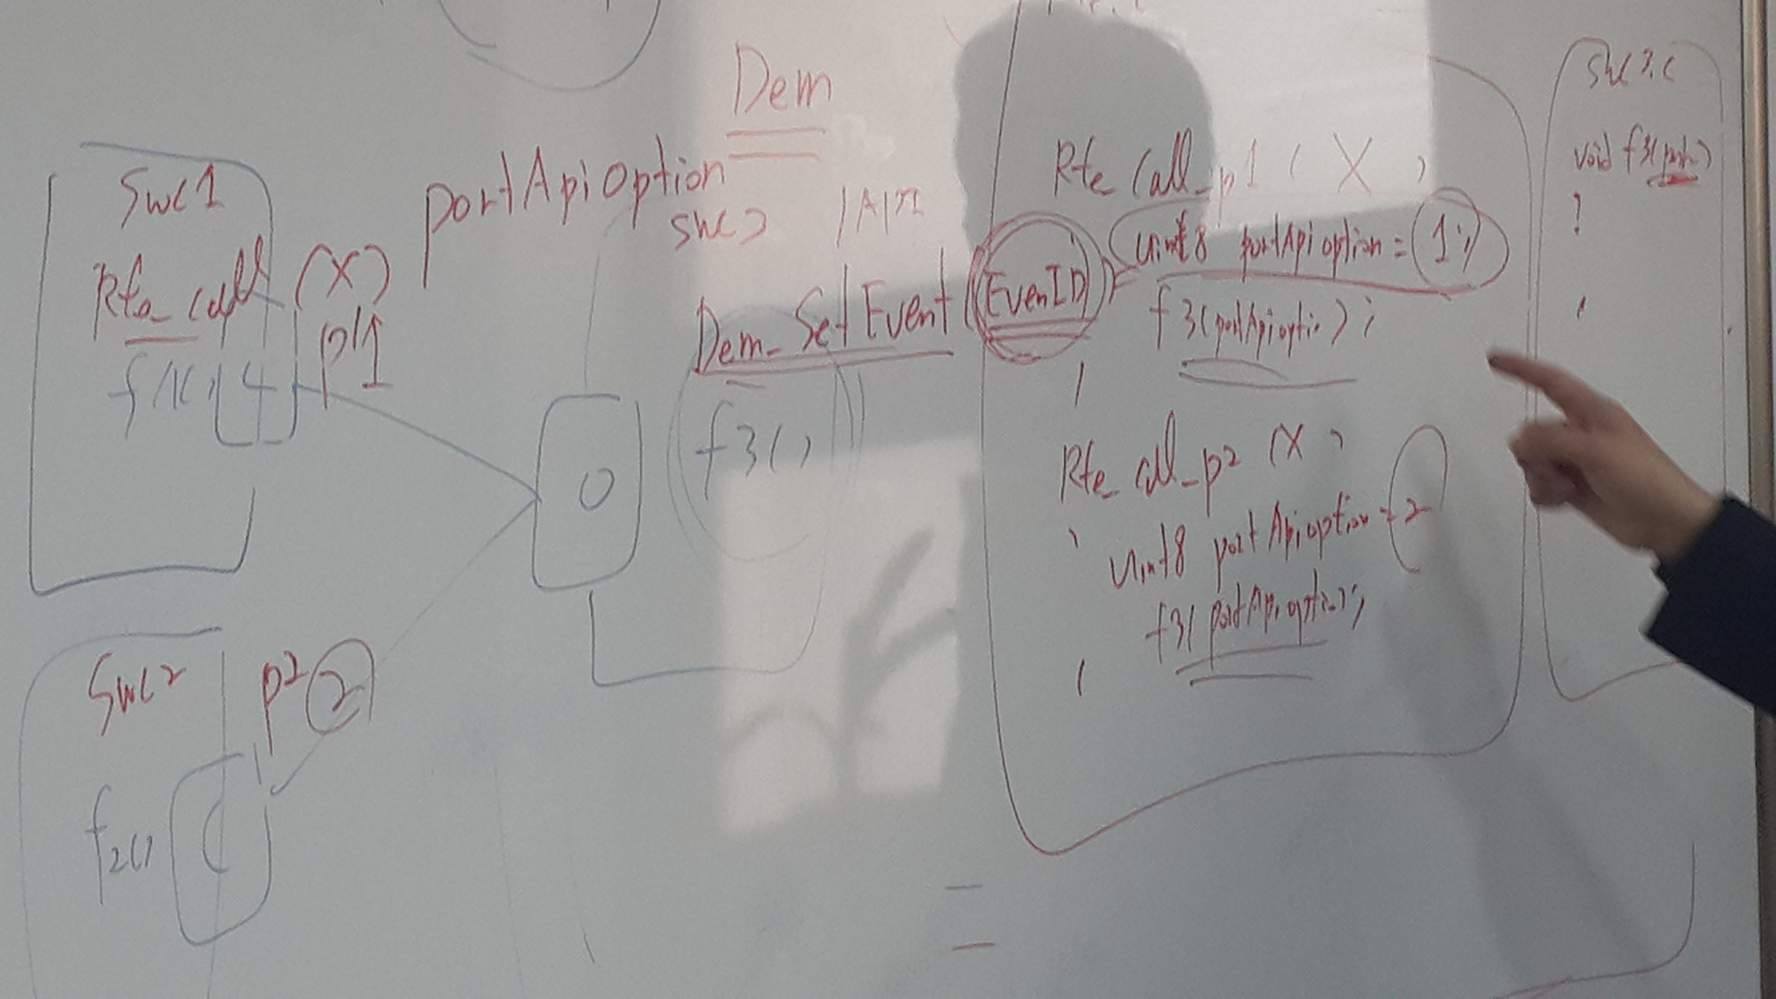 Dem
portApiOption
swc1
Rte_call (X)
p1
swc3
Dem_SetEvent (EvenID)
f3()
0
swc2
p2 2
f2()
Rte_Call_p1 ( X )
{ uint8 portApioption = 1;
f3(portApioptio );
}
Rte_call_p2 (X )
{
uint8 portApioption = 2
f3(portApioption);
}
swc3.c
void f3(port)
{
}